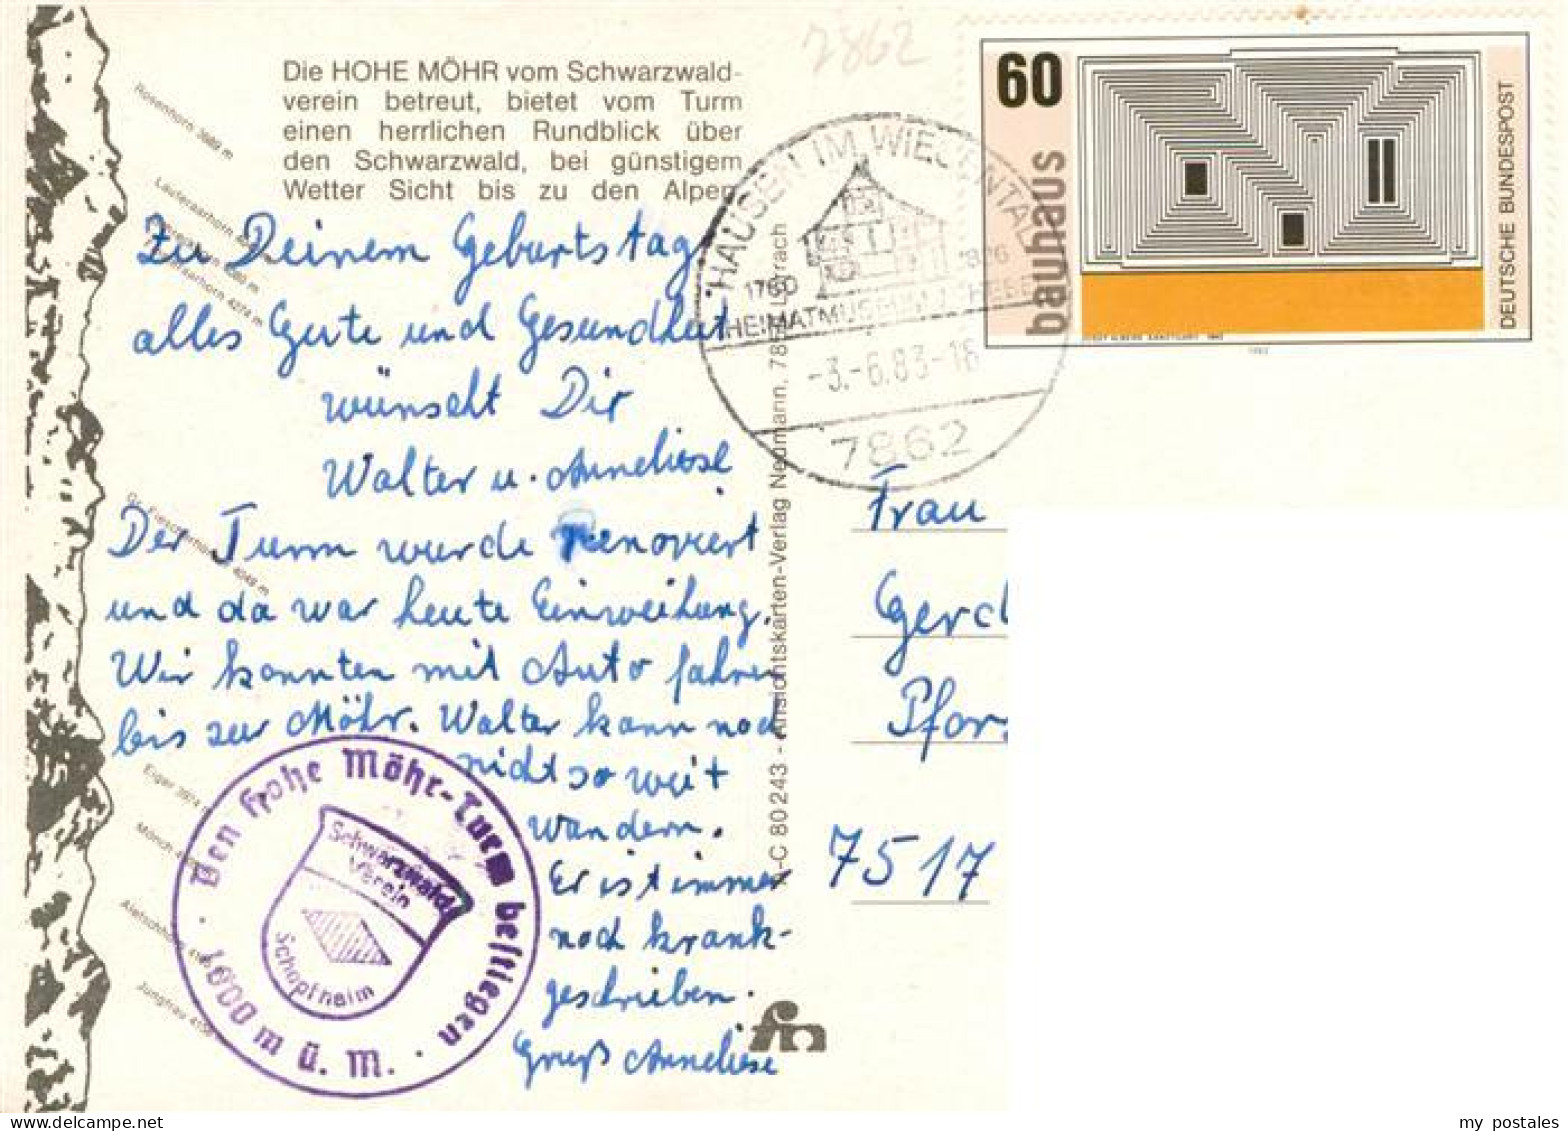 7862
Die HOHE MÖHR vom Schwarzwald-
verein betreut, bietet vom Turm
einen herrlichen Rundblick über
den Schwarzwald, bei günstigem
Wetter Sicht bis zu den Alpen
Zu Deinem Geburtstag
alles Gute und Gesundheit
wünscht Dir
Walter u. Anneliese
Der Turm wurde renoviert
und da war heute Einweihung.
Wir konnten mit Auto fahren
bis zur Möhr. Walter kann noch
nicht so weit
wandern.
Er ist immer
noch krank-
geschrieben.
Gruß Anneliese
Den Hohe Möhr-Turm bestiegen
· 1000 m ü. M. ·
Schwarzwald
Verein
Schopfheim
Rosenhorn 3689 m
Lauteraarhorn
4274 m
Gr. Fiescherhorn 4049 m
Eiger 3974 m
Mönch
Aletschhorn
Jungfrau
A-C 80 243 - Ansichtskarten-Verlag Neumann, 785 Lörrach
fn
HAUSEN IM WIESENTAL
1760
HEIMATMUSEUM
-3.-6.83-16
7862
60
bauhaus
DEUTSCHE BUNDESPOST
1983
Frau
Gerd
Pfor
7517
my postales